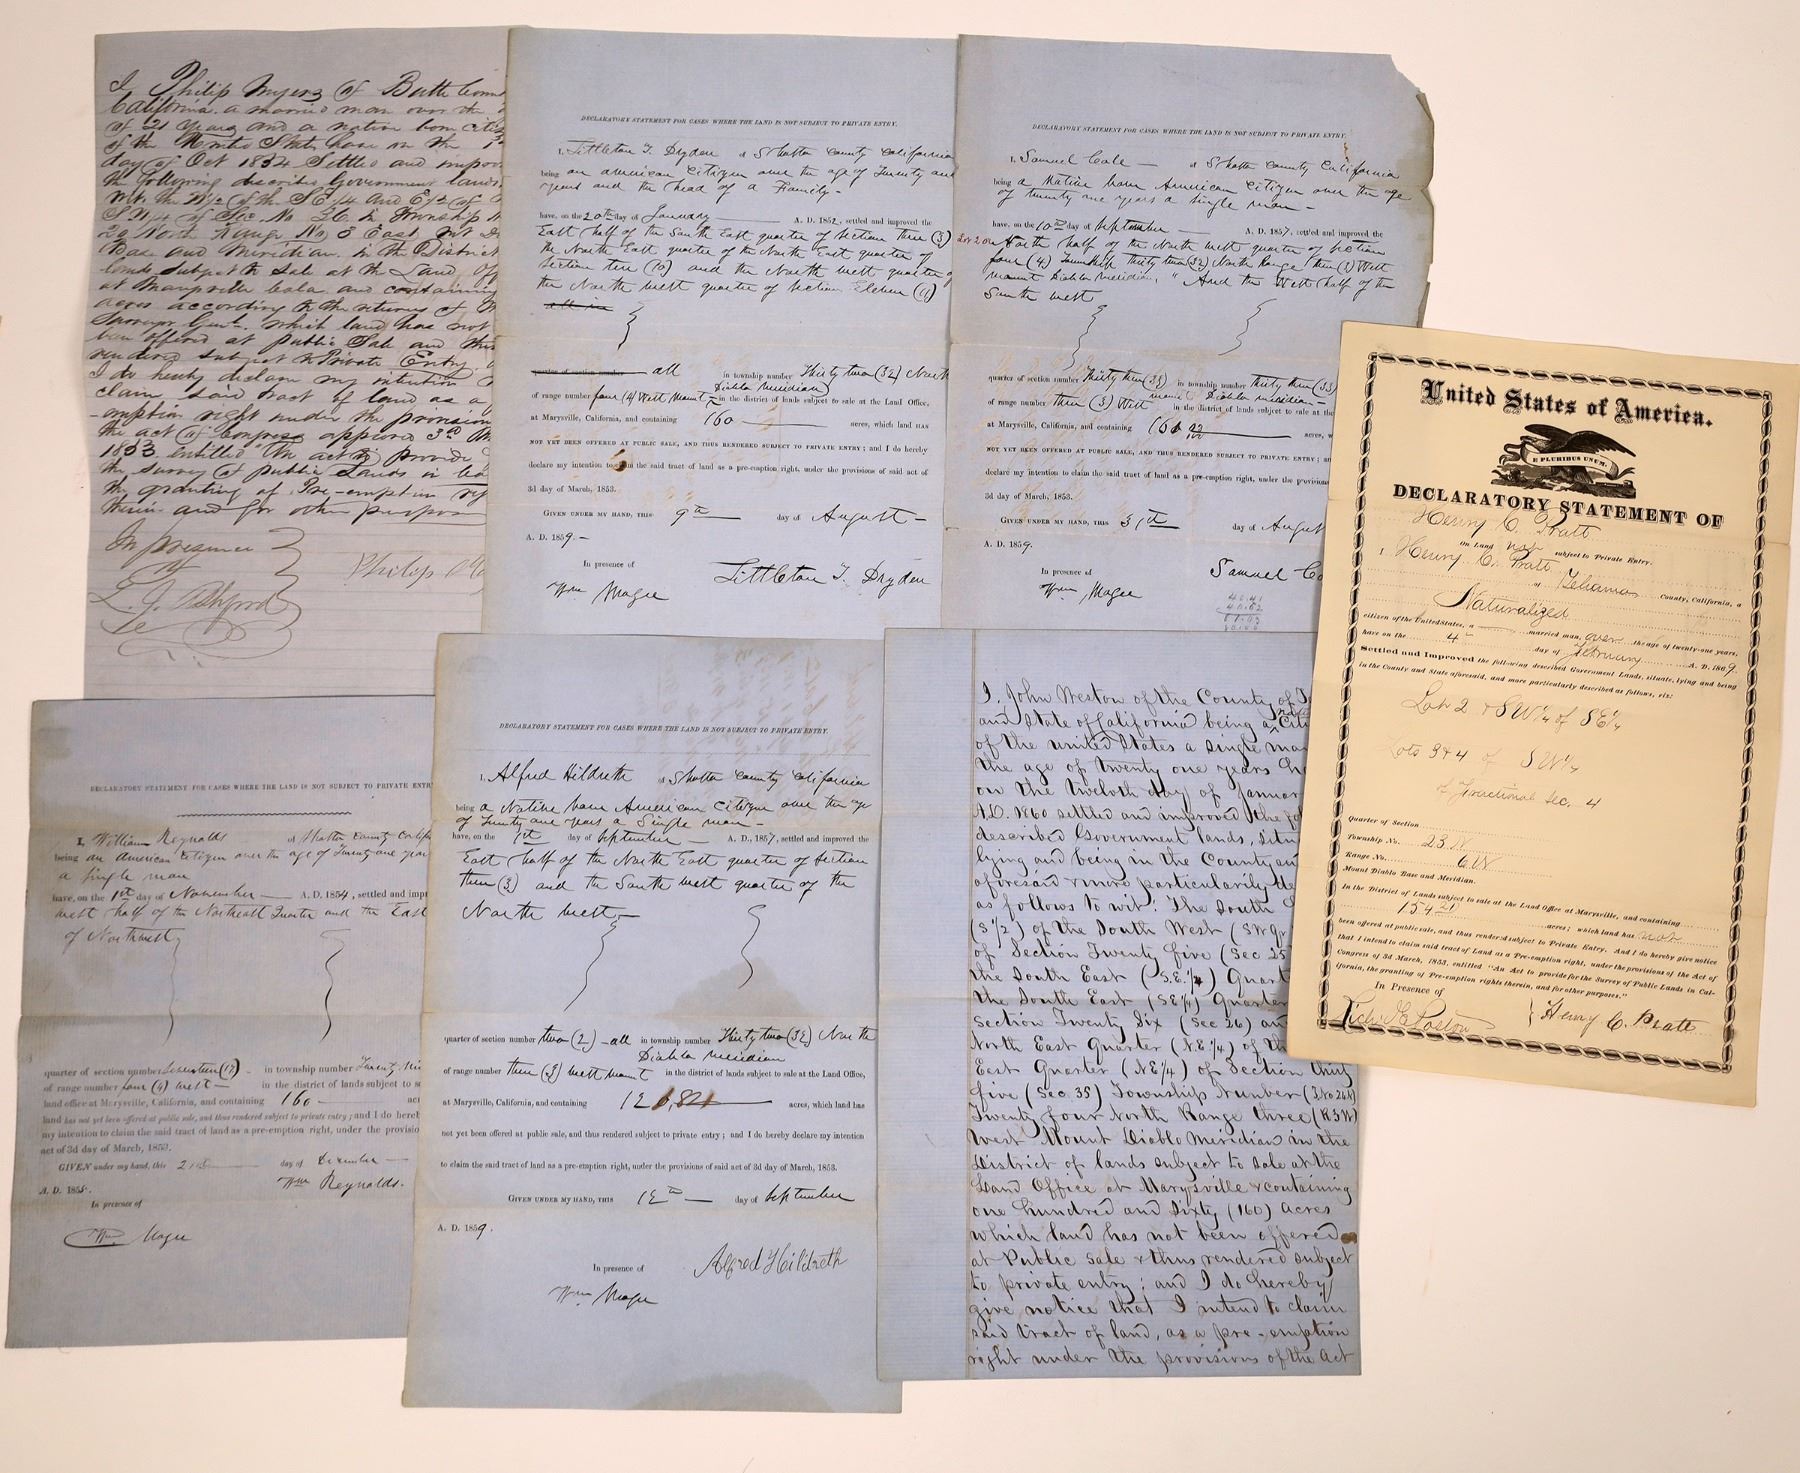 I Philip Myers of Butte
California. a married man over the
of 21 years and a native born
of the United States have on the 1st
day of Oct 1854 Settled and
the following describe Government lands
the W/2 of the SE 1/4 and E/2 of
S.W/4 of Sec. No 36 in Township
20 North Range No 3 East
Base and Meridian. in the District
lands subject to sale at the Land
at Marysville Cala. and containing
acres according to the returns of
Surveyor Genl. which land has not
been offered at public Sale and
rendered subject to Private Entry.
I do hereby declare my intention
claim said tract of land as a
-emption right under the provision
the act of Congress approved 3rd
1853. entitled "An act to provide
the survey of Public Lands in
the granting of Pre-emption
therein and for other purpose
In presence
of
L. J. Ashford
Philip
DECLARATORY STATEMENT FOR CASES WHERE THE LAND IS NOT SUBJECT TO PRIVATE ENTRY.
I, Littleton T. Dryden of Shasta County California
being an American Citizen over the age of Twenty one
years and the head of a Family-
have, on the 20th day of January A. D. 1852, settled and improved the
East half of the South East quarter of section three (3)
the North East quarter of the North East quarter of
Section ten (10) and the North West quarter of
the North west quarter of section Eleven (11)
all in
quarter of section number all in township number Thirty two (32) North
of range number four (4) West Mount Diablo Meridian in the district of lands subject to sale at the Land Office,
at Marysville, California, and containing 160 acres, which land HAS
NOT YET BEEN OFFERED AT PUBLIC SALE, AND THUS RENDERED SUBJECT TO PRIVATE ENTRY; and I do hereby
declare my intention to claim the said tract of land as a pre-emption right, under the provisions of said act of
3d day of March, 1853.
GIVEN UNDER MY HAND, THIS 9th day of August-
A. D. 1859.-
In presence of
Wm Magee
Littleton T. Dryden
DECLARATORY STATEMENT FOR CASES WHERE THE LAND IS NOT SUBJECT TO PRIVATE ENTRY.
I, Samuel Cole of Shasta County California
being a Native born American Citizen over the age
of twenty one years a single man-
have, on the 10th day of September A. D. 1857, settled and improved the
North half of the North West quarter of section
four (4) Township thirty two (32) North Range three (3) West
mount Diablo meridian, "And the West half of the
South West
quarter of section number Thirty three (33) in township number Thirty three (33)
of range number three (3) West mount Diablo meridian- in the district of lands subject to sale at the
at Marysville, California, and containing 161 acres,
NOT YET BEEN OFFERED AT PUBLIC SALE, AND THUS RENDERED SUBJECT TO PRIVATE ENTRY;
declare my intention to claim the said tract of land as a pre-emption right, under the provisions
3d day of March, 1853.
GIVEN UNDER MY HAND, THIS 31st day of August
A. D. 1859.
In presence of
Wm Magee
Samuel Co
United States of America.
E PLURIBUS UNUM.
DECLARATORY STATEMENT OF
Henry C. Pratt
On Land not subject to Private Entry.
I, Henry C. Pratt
of Tehama County, California, a
Naturalized
citizen of the United States, a married man, over the age of twenty-one years,
have on the 4th day of February A. D. 1869
Settled and Improved the following described Government Lands, situate, lying and being
in the County and State aforesaid, and more particularly described as follows, viz:
Lot 2 & SW¼ of SE¼
Lots 3 & 4 of SW¼
of Fractional Sec. 4
Quarter of Section
Township No. 23 N
Range No. 6 W
Mount Diablo Base and Meridian.
In the District of Lands subject to sale at the Land Office at Marysville, and containing
154 21 acres; which land has not
been offered at public sale, and thus rendered subject to Private Entry. And I do hereby give notice
that I intend to claim said tract of Land as a Pre-emption right, under the provisions of the Act of
Congress of 3d March, 1853, entitled "An Act to provide for the Survey of Public Lands in Cal-
ifornia, the granting of Pre-emption rights therein, and for other purposes."
In Presence of
Henry C. Pratt
DECLARATORY STATEMENT FOR CASES WHERE THE LAND IS NOT SUBJECT TO PRIVATE ENTR
I, William Reynolds of Shasta County
being an American Citizen over the age of Twenty one year
a single man
have, on the 1st day of November A. D. 1854, settled and
west half of the Northeast Quarter and the East
of Northwest
quarter of section number Seventeen (17) in township number Twenty
of range number four (4) west in the district of lands subject to
land office at Marysville, California, and containing 160
land has not yet been offered at public sale, and thus rendered subject to private entry; and I do hereb
my intention to claim the said tract of land as a pre-emption right, under the provisio
act of 3d day of March, 1853.
GIVEN under my hand, this day of December
A. D. 1855.
Wm Reynolds.
In presence of
Wm. Magee
DECLARATORY STATEMENT FOR CASES WHERE THE LAND IS NOT SUBJECT TO PRIVATE ENTRY.
I, Alfred Hildreth of Shasta County California
being a Native born American Citizen over the age
of Twenty one years a Single man-
have, on the 1st day of September A. D., 1857, settled and improved the
East half of the North East quarter of Section
three (3) and the South west quarter of the
North West
quarter of section number two (2) all in township number Thirty two (32) North
of range number three (3) west mount Diablo Meridian in the district of lands subject to sale at the Land Office,
at Marysville, California, and containing acres, which land has
not yet been offered at public sale, and thus rendered subject to private entry; and I do hereby declare my intention
to claim the said tract of land as a pre-emption right, under the provisions of said act of 3d day of March, 1853.
GIVEN UNDER MY HAND, THIS 12th day of September
A. D. 1859.
In presence of
Wm Magee
Alfred Hildreth
I. John Weston of the County of
and State of California being a
of the united States a single man
the age of twenty one years
on the Twelvth day of Januar
A.D. 1860 settled and improved the
described Government lands,
lying and being in the County an
aforesaid & more particularly
as follows to wit: The South
(S 1/2) of the South West (SW
of Section Twenty five (Sec 25
the South East (S.E. 1/4) Quart
the South East (SE 1/4) Quarter
Section Twenty Six (Sec 26) an
North East Quarter (N.E 1/4) of th
East Quarter (NE 1/4) of Section
five (Sec. 35) Township Number
Twenty four North Range three (R 3 W)
West Mount Diablo Meridian in the
District of lands subject to sale at the
Land Office at Marysville & containing
one hundred and Sixty (160) Acres
which land has not been offered
at Public sale & thus rendered subject
to private entry; and I do hereby
give notice that I intend to claim
said tract of land, as a pre-emption
right under the provisions of the Act